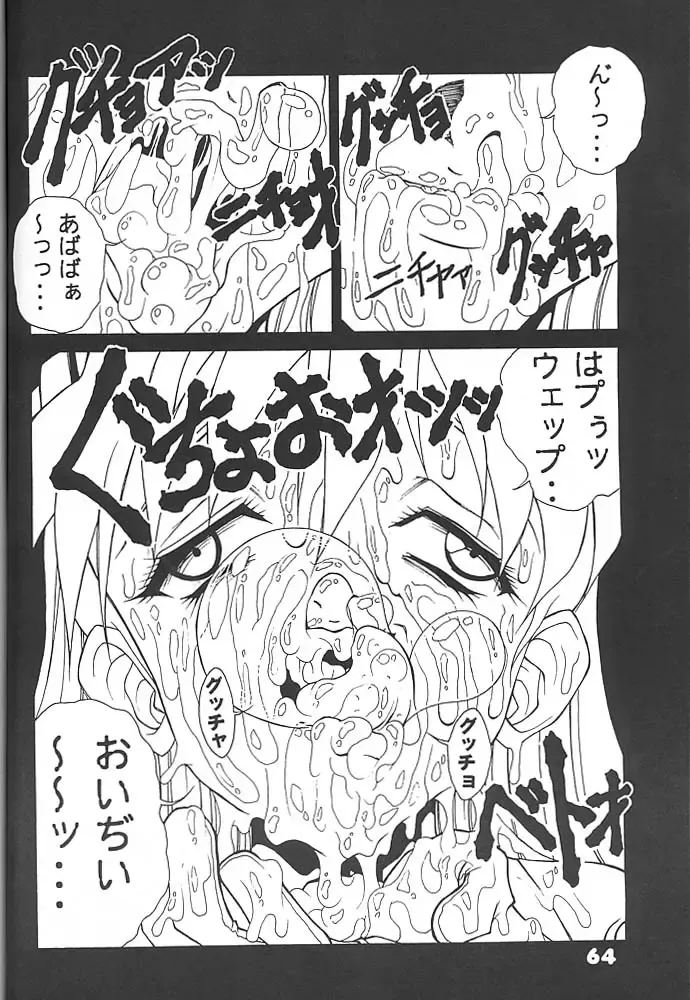 ん～っ・・・
グッチョ
グッチャ
ニチャァ
グチョアッ
ニチョォ
あばばぁ
～っっ・・・
はプぅッ
ウェップ・・
ぐちょおオッッ
グッチャ
グッチョ
おいぢい
～～ッ・・・
ベトォ
64